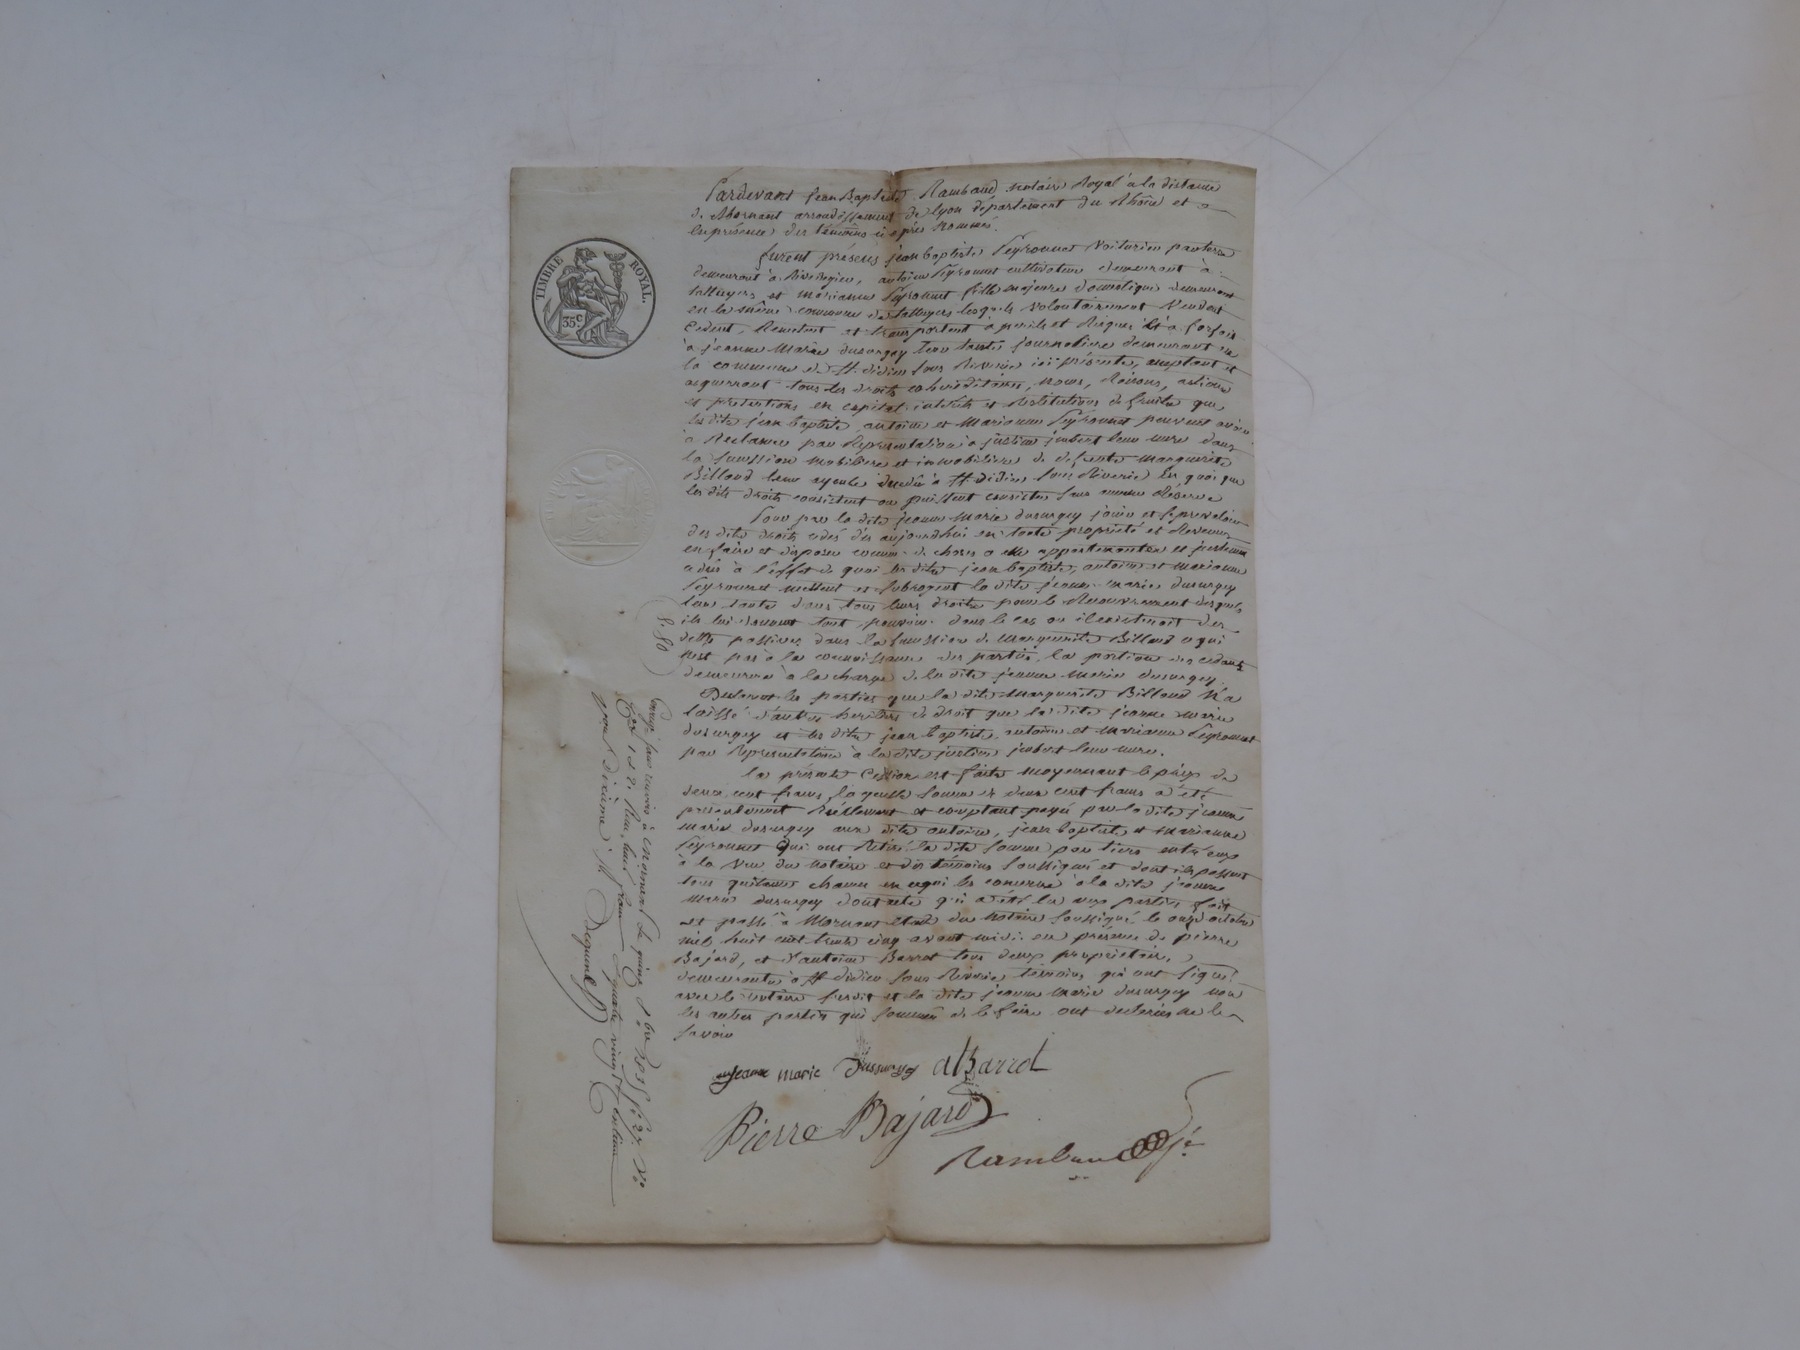 TIMBRE ROYAL.
35c
Pardevant Jean Baptiste Rambaud notaire Royal à la distance
de Mornant arrondissement de Lyon département du Rhône et
en présence des témoins ci après nommés.
furent présents jean baptiste Peyronnet voiturier par terre
demeurant à Rivedegier, antoine Peyronnet cultivateur demeurant à
talluyers et marianne Peyronnet fille majeure domestique demeurant
en la même commune de talluyers lesquels volontairement vendent
Cédent, Remettent et transportent à perils et Risques et à forfait
à jeanne Marie dusurgey leur tante journaliere demeurant en
la commune de St didier sous Riverie ici présente, acceptant et
acquerrant tous les droits cohéréditaires, noms, Raisons, actions
et prétentions en capital intérêts et Restitutions de fruits que
les dits jean baptiste, antoine et Marianne Peyronnet peuvent avoir
à Réclamer par Représentation à justine jmbert leur mere dans
la succession mobiliere et immobiliere de defunte Marguerite
Billoud leur ayeule décédée à St didier sous Riverie En quoi que
les dits droits consistent ou puissent consister sans aucune Réserve
Pour par la dite jeanne Marie dusurgey jouir et se prévaloir
des dits droits cédés dès aujourdhui en toute propriété et Revenus
en faire et disposer comme de choses a elle appartenantes et justement
à l'effet de quoi les dits jean baptiste, antoine et marianne
Peyronnet mettent et subrogent la dite jeanne marie dusurgey
leur tante dans tous leurs droits pour le Recouvrement desquels
ils lui donnent tout pouvoir. dans le cas ou il existeroit des
dettes passives dans la succession de Marguerite Billoud ce qui
n'est pas à la connoissance des parties, la portion des cédants
demeurera à la charge de la dite jeanne marie dusurgey.
Observent les parties que la dite Marguerite Billoud n'a
laissé d'autres heritiers de droit que la dite jeanne marie
dusurgey et les dits jean baptiste, antoine et marianne Peyronnet
par Représentation à la dite justine jmbert leur mere.
la présente Cession est faite moyennant le prix de
deux cent francs, la quelle somme de deux cent francs a été
présentement Réellement et comptant payée par la dite jeanne
marie dusurgey aux dits antoine, jean baptiste et marianne
Peyronnet qui ont Retiré la dite somme par tiers entr'eux
à la vue du notaire et des témoins soussignés et dont ils passent
tous quittance chacun en ce qui les concerne à la dite jeanne
Marie dusurgey dont acte qui a été lu aux parties fait
et passé à Mornant étude du notaire soussigné le onze octobre
mil huit cent trente cinq avant midi en présence de pierre
Bajard, et d'antoine Barret tous deux propriétaires
demeurants à St didier sous Riverie témoins qui ont signé
avec le notaire susdit et la dite jeanne Marie dusurgey non
les autres parties qui sommées de le faire ont déclaré ne le
savoir
jeanne marie Dussurgey aBarret
Pierre Bajard
Rambaud
8.80
Enregé sans renvoi à Mornant le quinze 8bre 1835 fo 27 Vo
Reçu huit francs quatre vingt centimes
pour Dixième